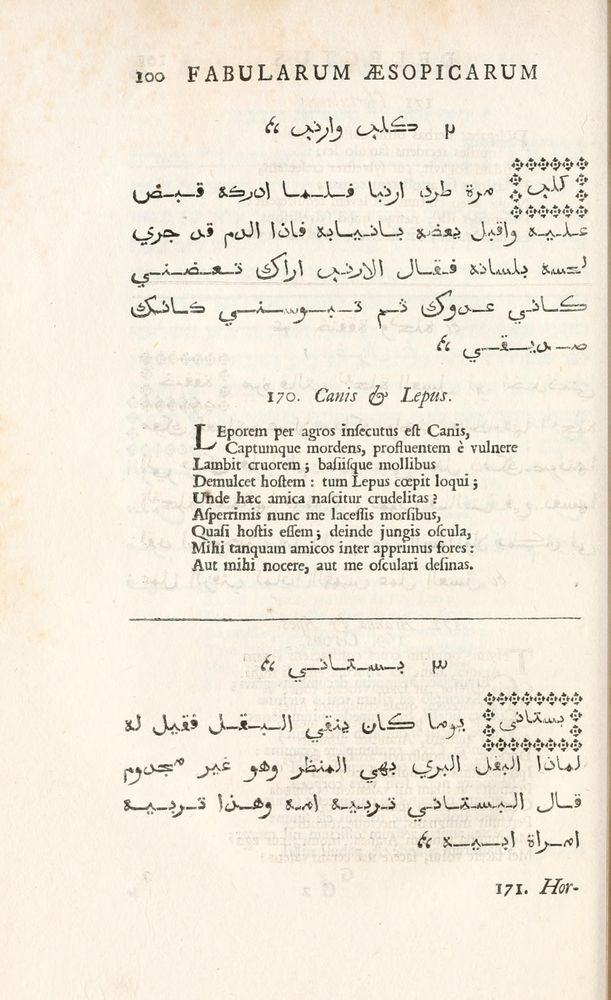 100 FABULARUM ÆSOPICARUM
٢ كلب وارنب
كلب مرة طرد ارنبا فلما ادركه قبض
عليه واقبل يعضه بانيابه فاذا الدم قد جري
لحسه بلسانه فقال الارنب اراك تعضني
كاني عدوك ثم تبوسني كانك
صديقي
170. Canis & Lepus.
LEporem per agros insecutus est Canis,
Captumque mordens, profluentem è vulnere
Lambit cruorem; basiisque mollibus
Demulcet hostem: tum Lepus cœpit loqui;
Unde hæc amica nascitur crudelitas?
Asperrimis nunc me lacessis morsibus,
Quasi hostis essem; deinde jungis oscula,
Mihi tanquam amicos inter apprimus fores:
Aut mihi nocere, aut me osculari desinas.
٣ بستاني
بستاني يوما كان ينقي البقل فقيل له
لماذا البقل البري بهي المنظر وهو غير مخدوم
قال البستاني تربيه امه وهذا تربيه
امراة ابيه
171. Hor-